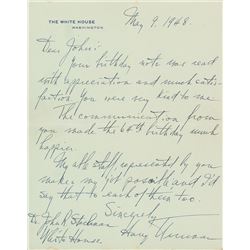 THE WHITE HOUSE
WASHINGTON
May 9, 1948.
Dear John:
Your birthday note was read
with appreciation and much satis-
faction. You were very kind to me.
The communication from
you made the 64th birthday much
happier.
My able staff represented by you
makes my job possible and I'd
say that to each of them too.
Sincerely
Harry Truman
Dr. John R. Steelman
White House.